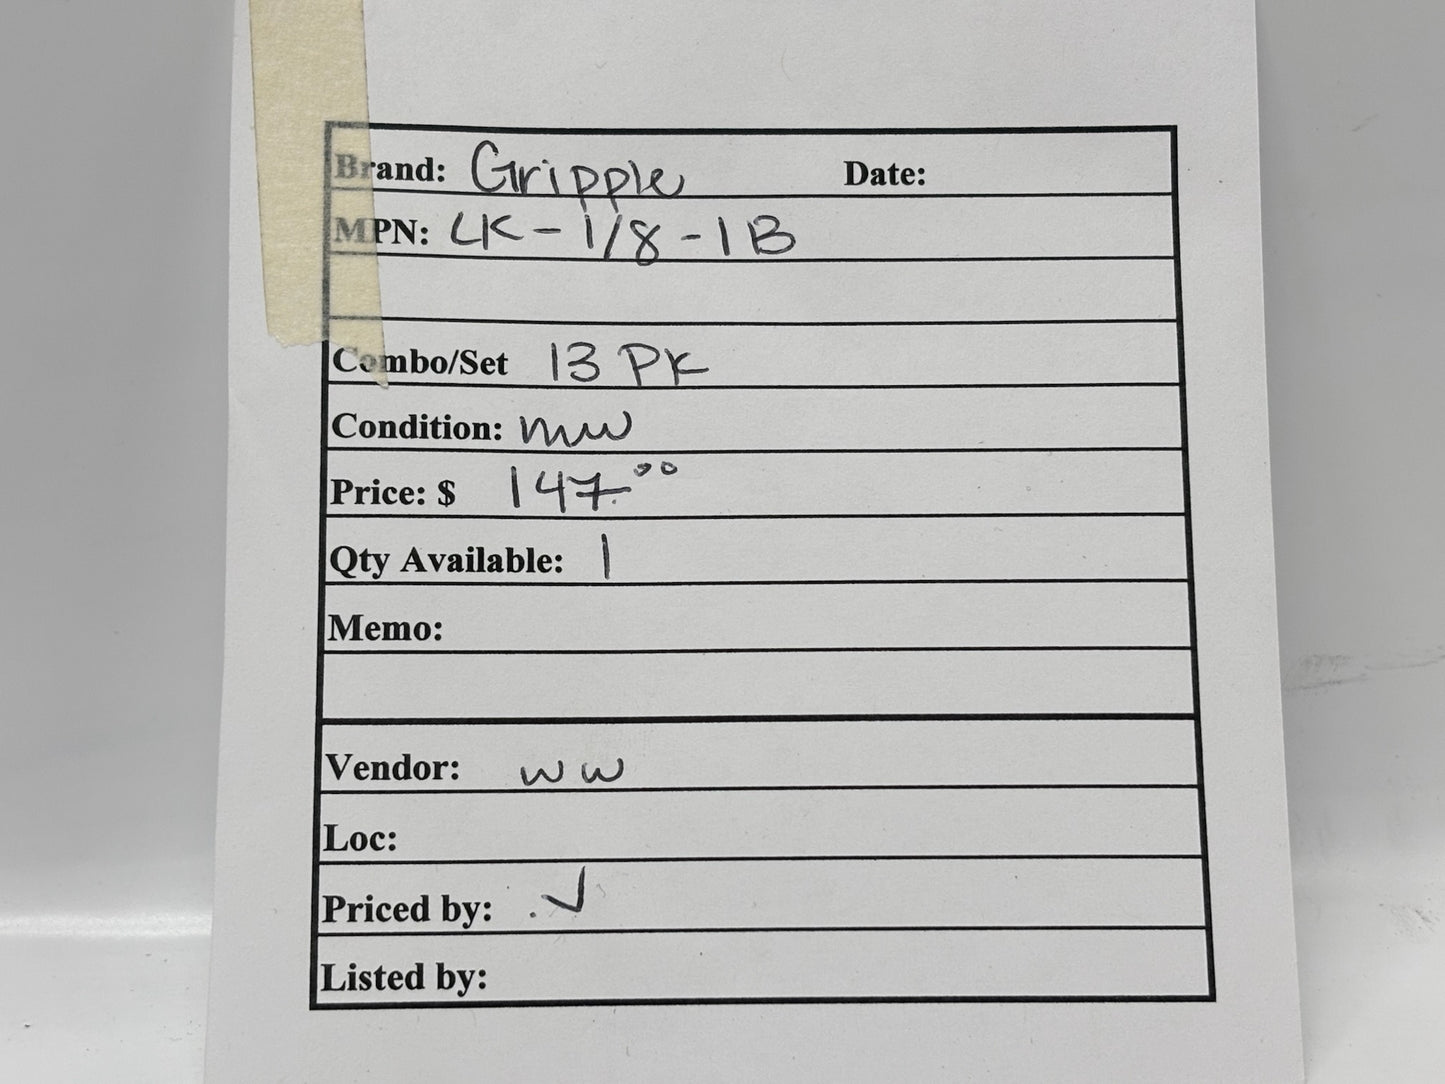 Brand: Gripple Date:
MPN: LK-1/8-1B
Combo/Set 13 PK
Condition:
Price: $ 147.00
Qty Available: 1
Memo:
Vendor: WW
Loc:
Priced by: J
Listed by: